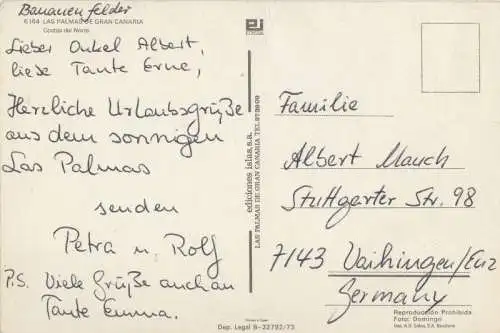 Bananenfelder
6164 LAS PALMAS DE GRAN CANARIA
Costas del Norte
Lieber Onkel Albert,
liebe Tante Erne,
Herzliche Urlaubsgrüße
aus dem sonnigen
Las Palmas
senden
Petra u. Rolf
P.S. Viele Grüße auch an
Tante Emma.
ediciones islas, s.a.
LAS PALMAS DE GRAN CANARIA
Familie
Albert Mauch
Stuttgarter Str. 98
7143 Vaihingen/Enz
Germany
Reproducción Prohibida
Foto: Domingo
Dep. Legal B-32792/73